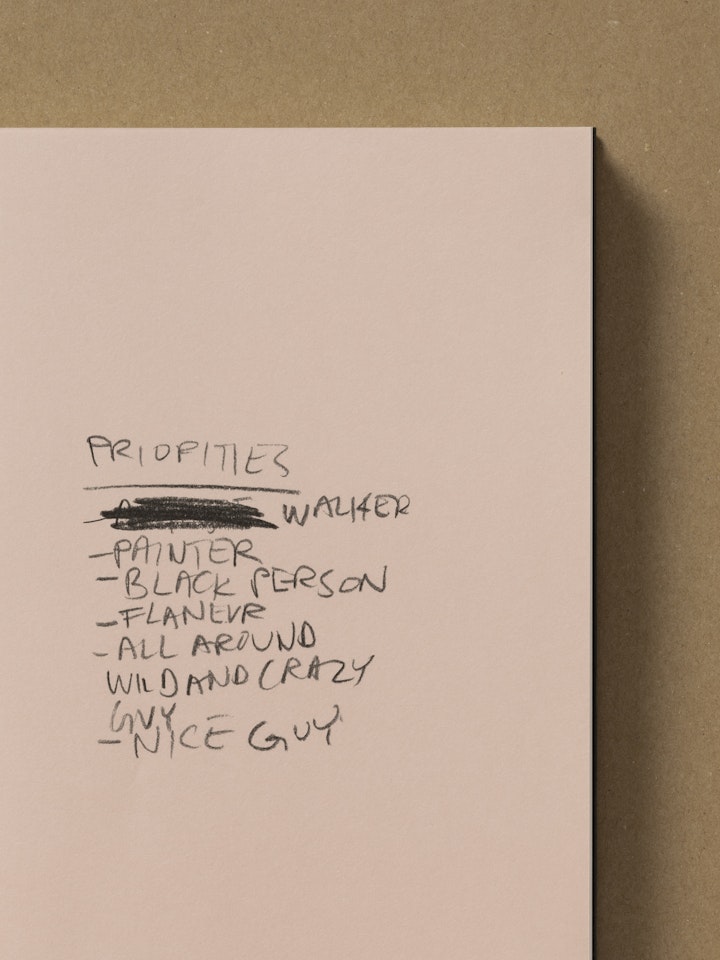 PRIORITIES
- WALKER
-PAINTER
-BLACK PERSON
-FLANEUR
-ALL AROUND
WILD AND CRAZY
GUY
-NICE GUY